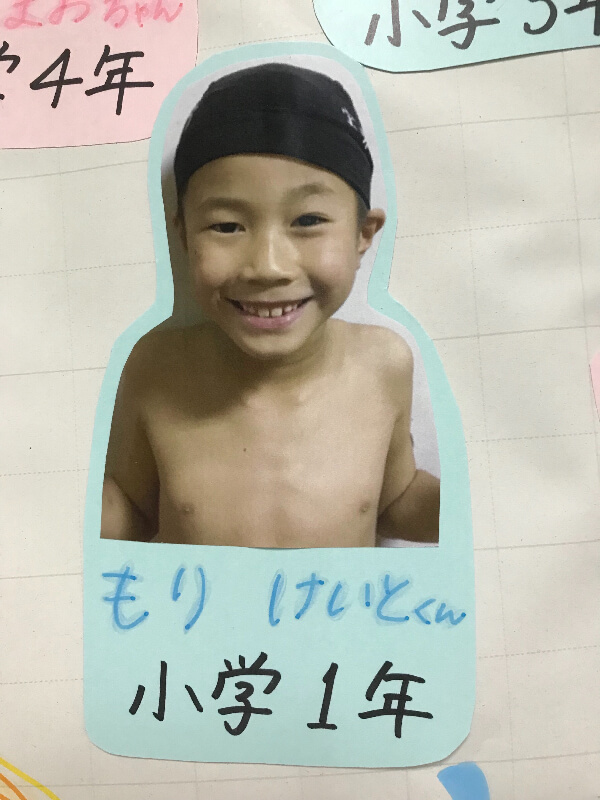 まおちゃん
学4年
小学5年
もり けいとくん
小学1年